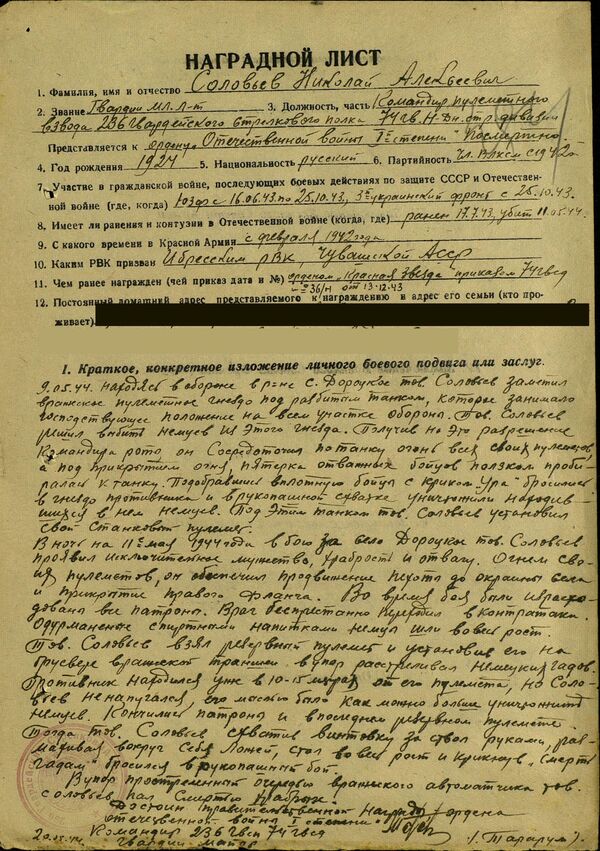 НАГРАДНОЙ ЛИСТ
1. Фамилия, имя и отчество Соловьев Николай Алексеевич
2. Звание Гвардии мл. л-т 3. Должность, часть Командир пулеметного
взвода 236 гвардейского стрелкового полка 74 гв. Н-Дн. стр. дивизии
Представляется к ордену Отечественной войны I степени Посмертно.
4. Год рождения 1924 5. Национальность русский 6. Партийность чл. ВЛКСМ с 1942
7. Участие в гражданской войне, последующих боевых действиях по защите СССР и Отечествен-
ной войне (где, когда) ЮЗФ с 16.06.43 по 25.10.43, 3й украинский фронт с 25.10.43.
8. Имеет ли ранения и контузии в Отечественной войне (когда, где) ранен 17.7.43, убит 11.05.44.
9. С какого времени в Красной Армии с февраля 1942 года
10. Каким РВК призван Ибресским РВК, Чувашской АССР
11. Чем ранее награжден (чей приказ дата и №) орденом "Красная Звезда" приказом 74 гвсд
№ 36/н от 13.12.43
12. Постоянный домашний адрес представляемого к награждению и адрес его семьи (кто про-
живает)
I. Краткое, конкретное изложение личного боевого подвига или заслуг.
9.05.44. находясь в обороне в р-не с. Дороцкое тов. Соловьев заметил
вражеское пулеметное гнездо под разбитым танком, которое занимало
господствующее положение на всем участке обороны. Тов. Соловьев
решил выбить немцев из этого гнезда. Получив на это разрешение
командира роты, он сосредоточил по танку огонь всех своих пулеметов,
а под прикрытием огня, пятерка отважных бойцов ползком проби-
ралась к танку. Подобравшись вплотную бойцы с криком "Ура" бросились
в гнездо противника и в рукопашной схватке уничтожили находив-
шихся в нем немцев. Под этим танком тов. Соловьев установил
свой станковый пулемет.
В ночь на 11е мая 1944 года в бою за село Дороцкое тов. Соловьев
проявил исключительное мужество, храбрость и отвагу. Огнем сво-
их пулеметов, он обеспечил продвижение пехоты до окраины села
и прикрытие правого фланга. Во время боя были израсхо-
дованы все патроны. Враг беспрестанно переходил в контратаки.
Одурманенные спиртными напитками немцы шли во весь рост.
Тов. Соловьев взял резервный пулемет и установив его на
бруствере вражеской траншеи в упор расстреливал немецких гадов.
Противник находился уже в 10-15 метрах от его пулемета, но Соло-
вьев не напугался, его мыслью было как можно больше уничтожить
немцев. Кончились патроны и в последнем резервном пулемете
тогда тов. Соловьев схватив винтовку за ствол руками, раз-
махивая вокруг себя ложей, стал во весь рост и крикнув "Смерть
гадам" бросился в рукопашный бой.
В упор простреленный очередью вражеского автоматчика тов.
Соловьев пал смертью храбрых.
Достоин правительственной награды ордена
отечественной войны I степени
Командир 236 гвсп 74 гвсд
гвардии майор
/Тарарум/